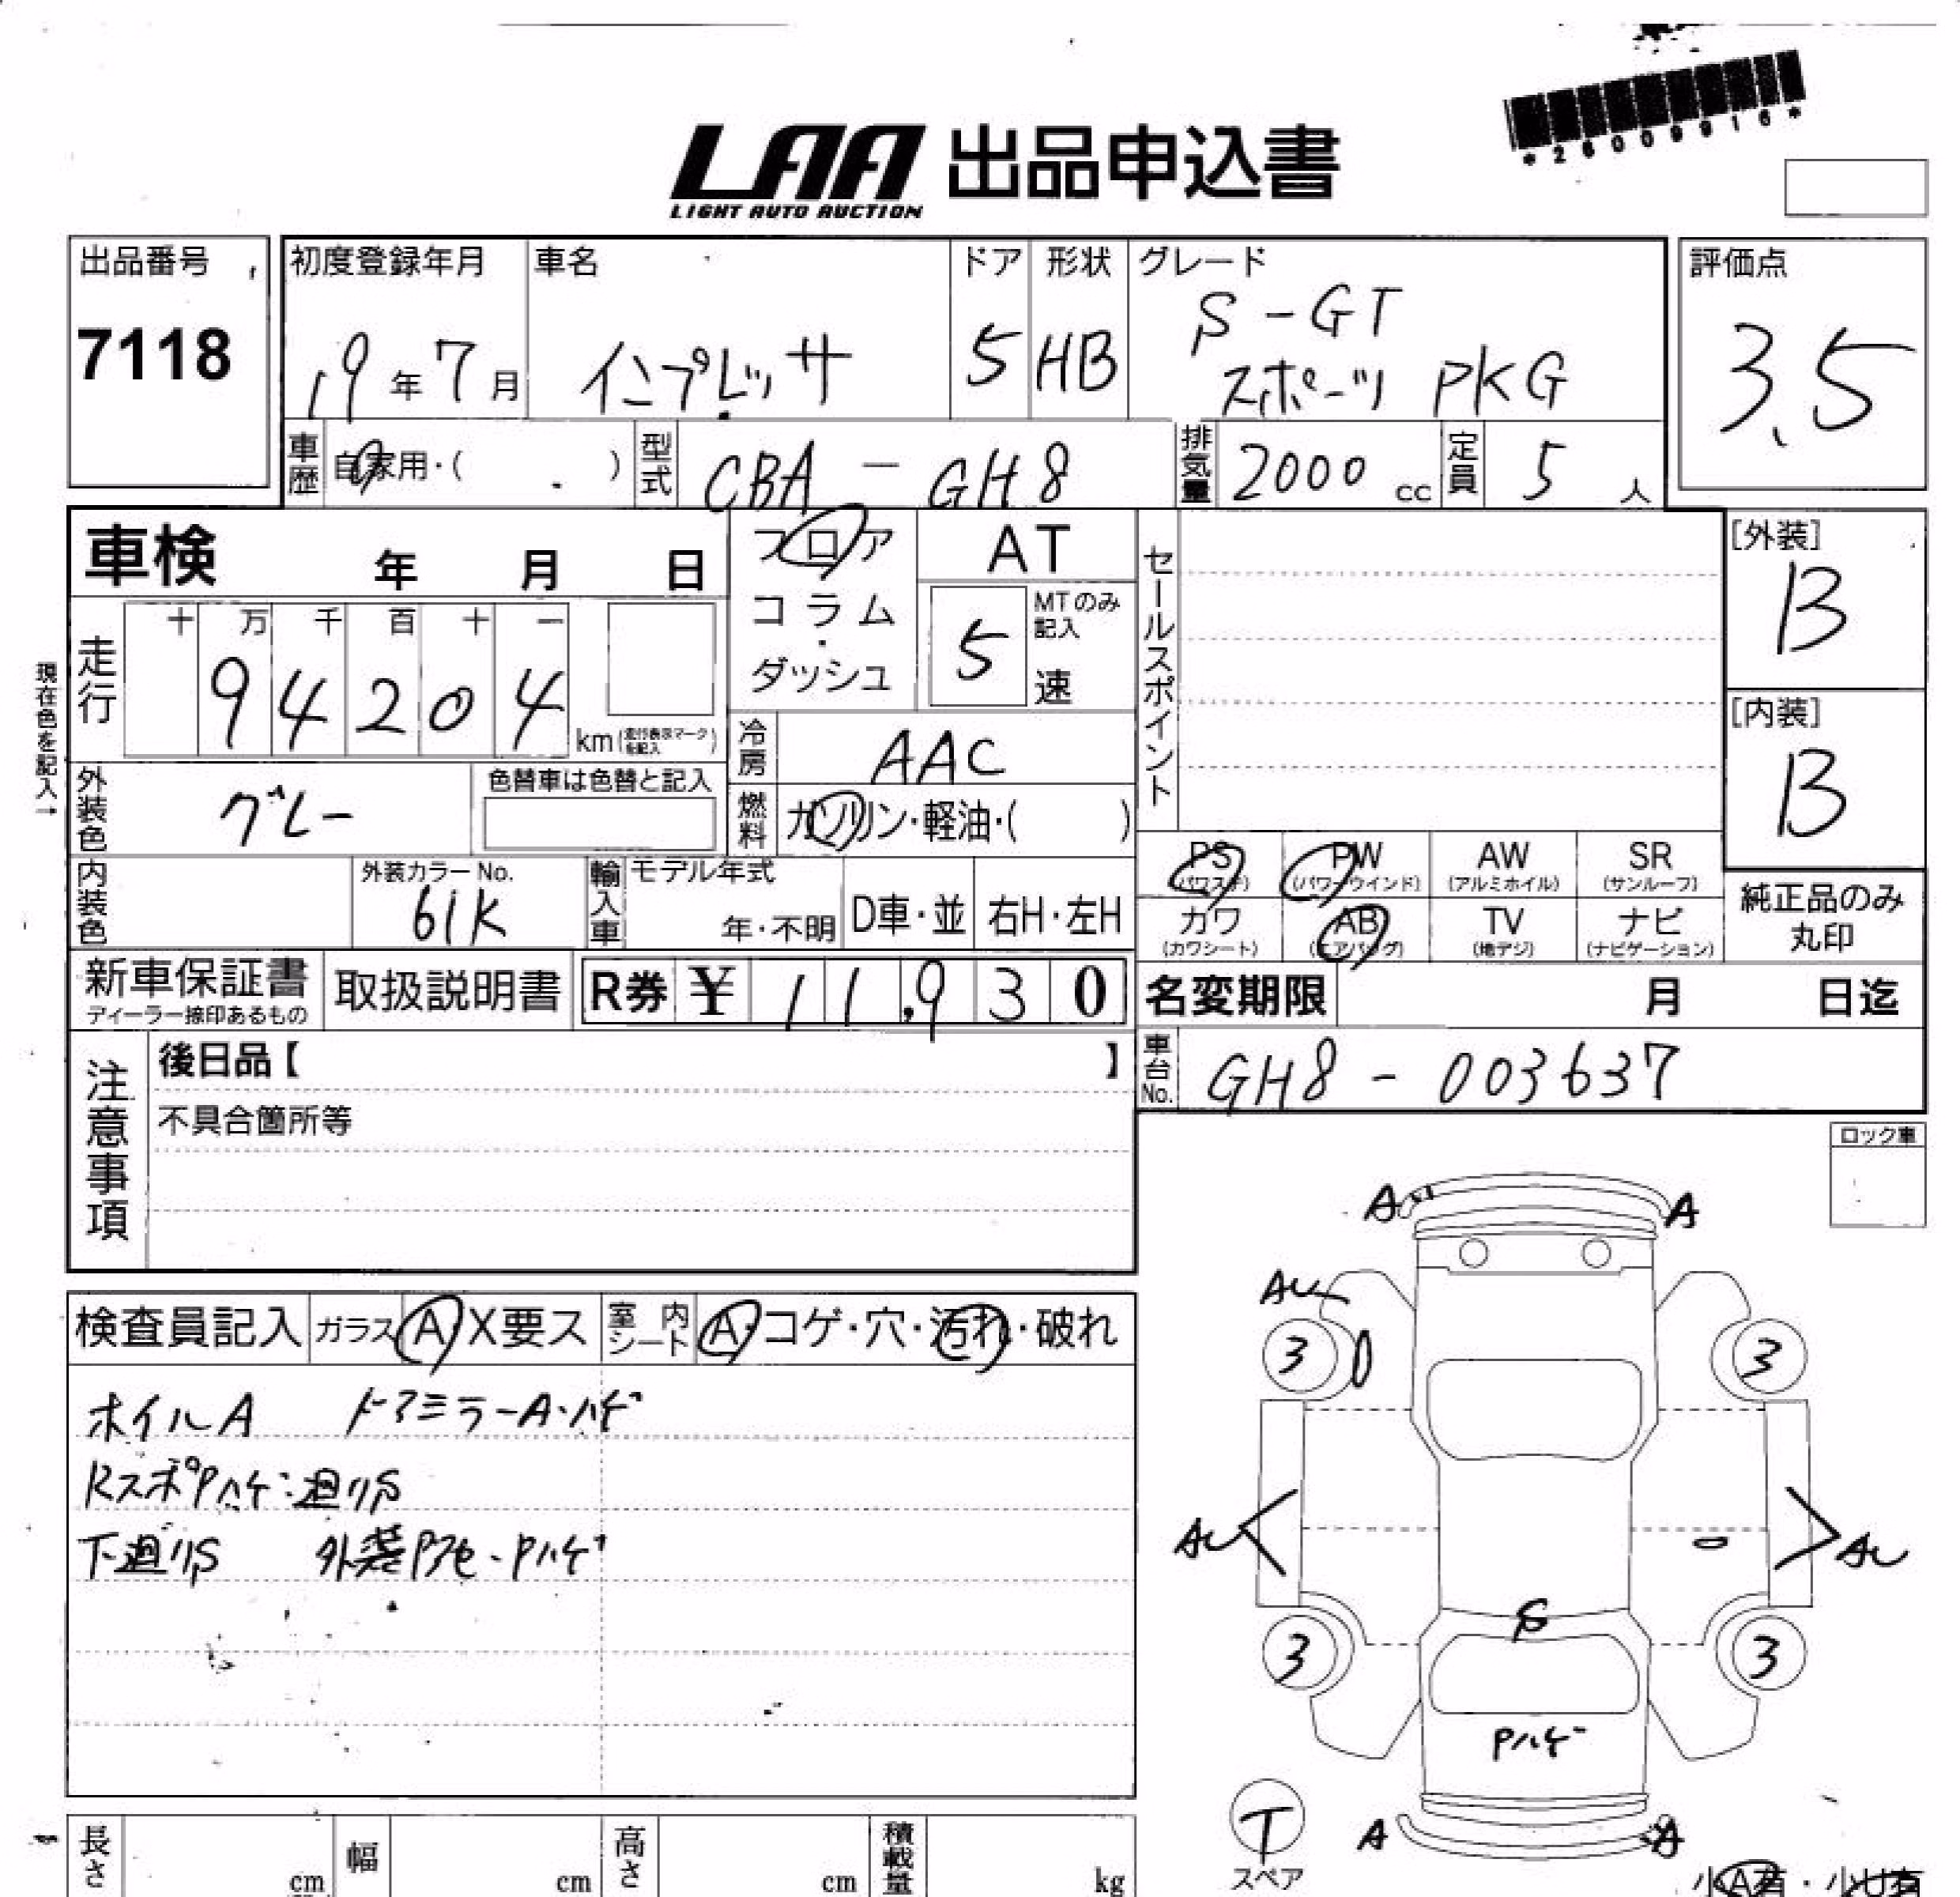 *26009916*
LAA 出品申込書
LIGHT AUTO AUCTION
出品番号
7118
初度登録年月
19年7月
車名
インプレッサ
ドア
5
形状
HB
グレード
S-GT
スポーツ PKG
評価点
3.5
車歴
自家用・( )
型式
CBA-GH8
排気量
2000 cc
定員
5 人
車検 年 月 日
フロア
コラム
・
ダッシュ
AT
5
MTのみ
記入
速
セールスポイント
[外装]
B
[内装]
B
現在色を記入→
走行
十 万 千 百 十 一
9 4 2 0 4
km
冷房
AAC
燃料
ガソリン・軽油・( )
外装色
グレー
色替車は色替と記入
内装色
外装カラー No.
61K
輸入車
モデル年式
年・不明
D車・並
右H・左H
PS
(パワステ)
PW
(パワーウインド)
AW
(アルミホイル)
SR
(サンルーフ)
カワ
(カワシート)
AB
(エアバッグ)
TV
(地デジ)
ナビ
(ナビゲーション)
純正品のみ
丸印
新車保証書
ディーラー捺印あるもの
取扱説明書
R券 ¥ 11,930
名変期限 月 日迄
車台No.
GH8-003637
注意事項
後日品【 】
不具合箇所等
ロック車
検査員記入
ガラス A X要ス
室内シート
A・コゲ・穴・汚れ・破れ
ホイルA ドアミラーA・ハゲ
RスポPハゲ:廻りS
下廻りS 外装Pアセ・Pハゲ
A A
AU
3 3
AU AU
S
3 3
Pハゲ
T
スペア
A A
小A有・小U有
長さ cm
幅 cm
高さ cm
積載量 kg